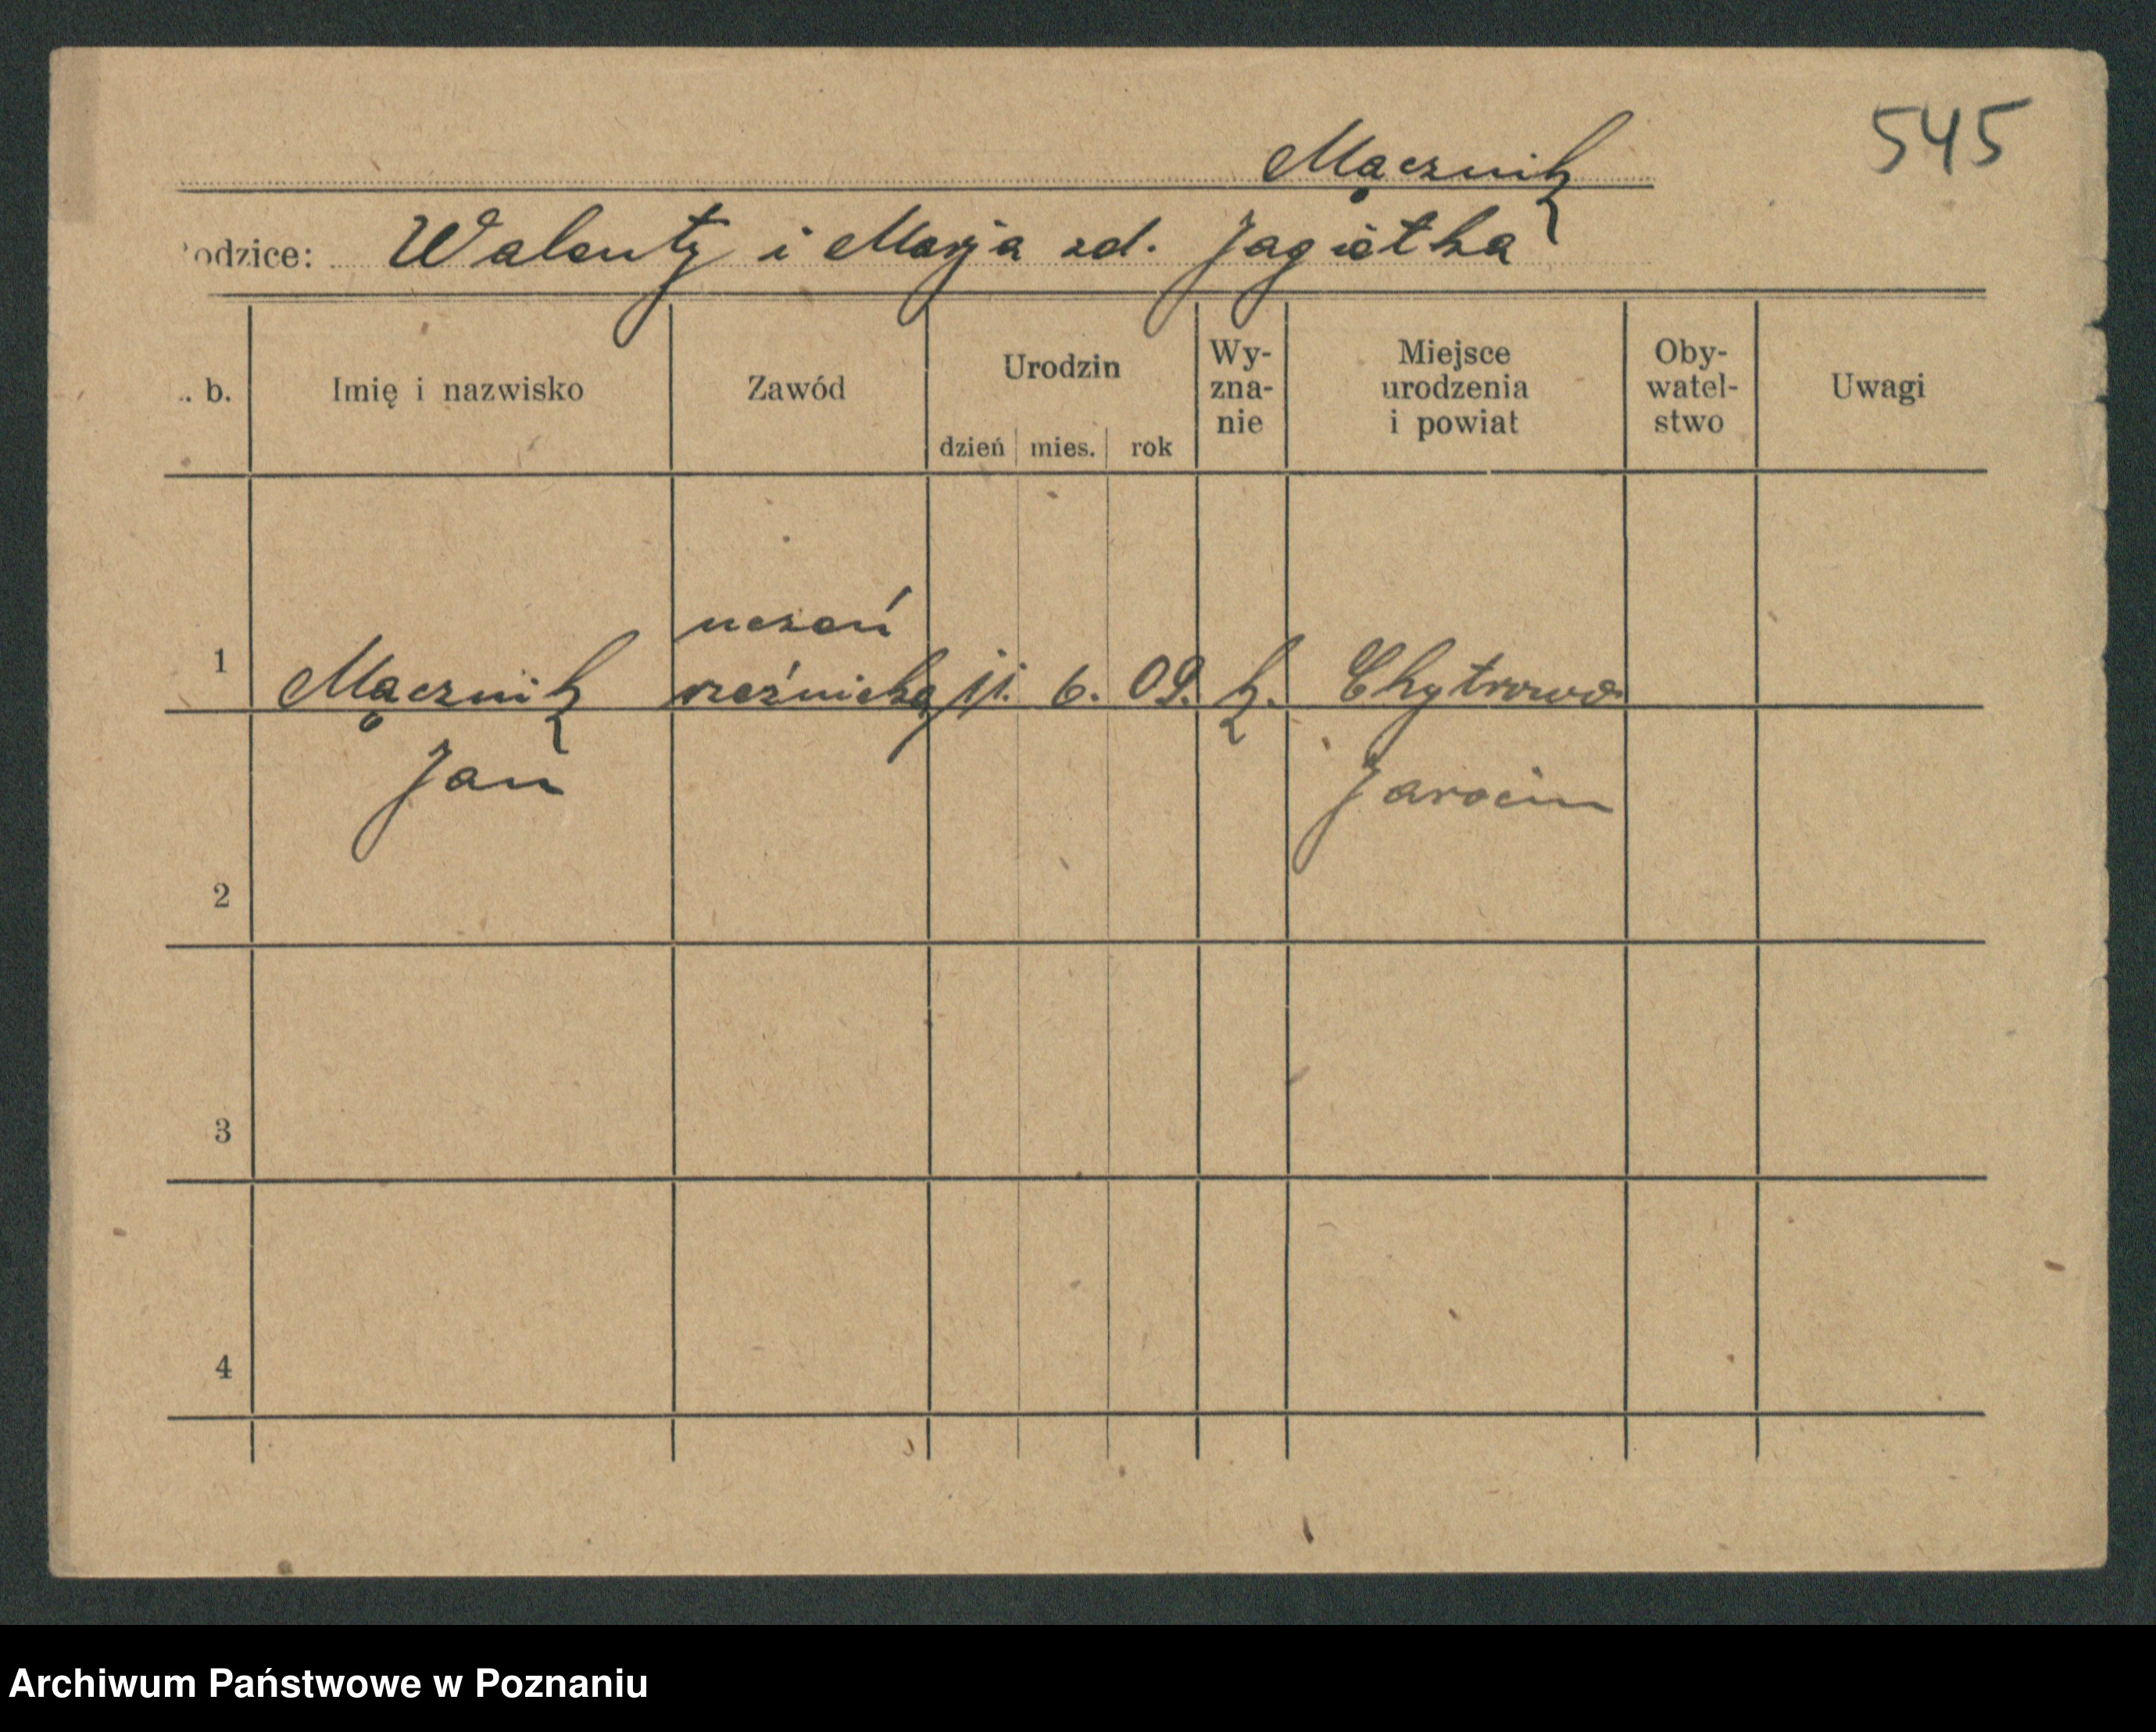 545
Mącznik
odzice: Walenty i Marja zd. Jagiełka
. b. Imię i nazwisko Zawód Urodzin dzień mies. rok Wy-zna-nie Miejsce urodzenia i powiat Oby-watel-stwo Uwagi
uczeń
1 Mącznik rzeźnicki 11. 6. 09. k. Chytrowo
Jan Jarocin
2
3
4
Archiwum Państwowe w Poznaniu